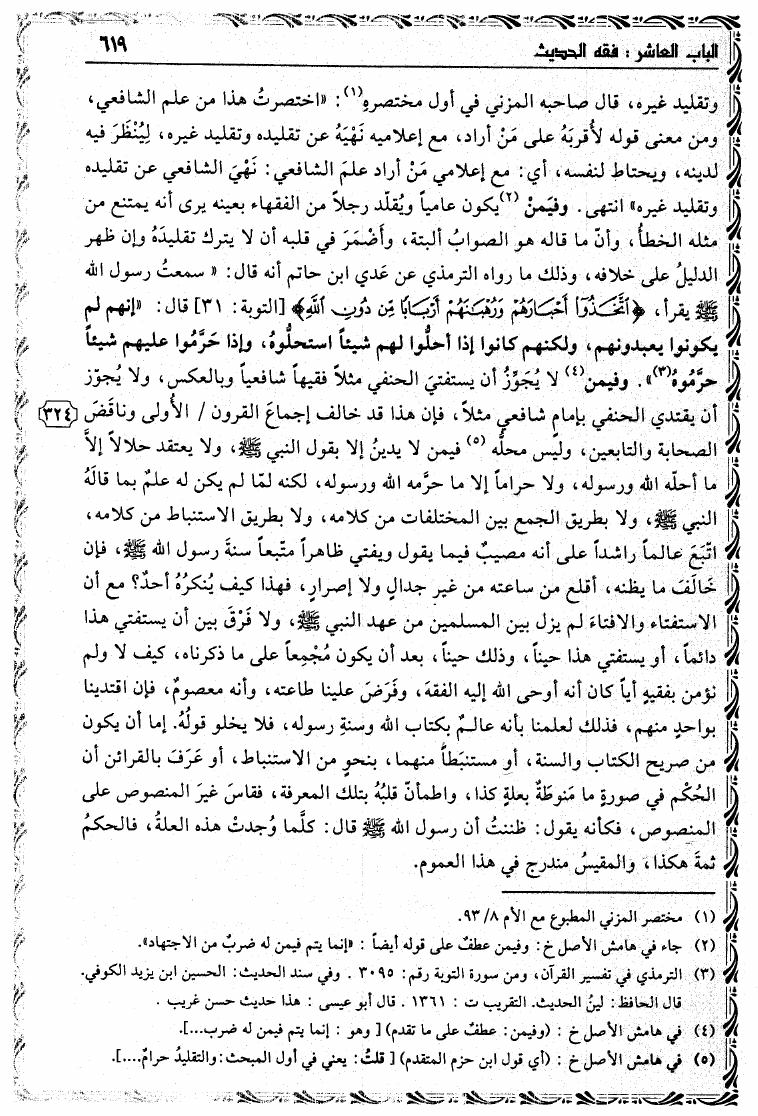 الباب العاشر : فقه الحديث
٦١٩
وتقليد غيره، قال صاحبه المزني في أول مختصرهِ(١): «اختصرتُ هذا من علم الشافعي،
ومن معنى قوله لأُقربَهُ على مَنْ أراد، مع إعلاميه نَهْيَهُ عن تقليده وتقليد غيره، لِيُنْظَرَ فيه
لدينه، ويحتاط لنفسه، أي: مع إعلامي مَنْ أراد علمَ الشافعي: نَهْيَ الشافعي عن تقليده
وتقليد غيره» انتهى. وفيَمنْ (٢)يكون عامياً ويُقلّد رجلاً من الفقهاء بعينه يرى أنه يمتنع من
مثله الخطأُ، وأنّ ما قاله هو الصوابُ ألبتة، وأَضْمَرَ في قلبه أن لا يترك تقليدَهُ وإن ظهر
الدليلُ على خلافه، وذلك ما رواه الترمذي عن عَدي ابن حاتم أنه قال: « سمعتُ رسول الله
ﷺ يقرأ، ﴿ٱتَّخَذُوٓا۟ أَحْبَارَهُمْ وَرُهْبَـٰنَهُمْ أَرْبَابًا مِّن دُونِ ٱللَّهِ﴾ [التوبة: ٣١] قال: «إنهم لم
يكونوا يعبدونهم، ولكنهم كانوا إذا أحلُّوا لهم شيئاً استحلُّوهُ، وإذا حَرَّمُوا عليهم شيئاً
حرَّمُوهُ(٣)». وفيمن(٤) لا يُجَوِّزُ أن يستفتيَ الحنفي مثلاً فقيهاً شافعياً وبالعكس، ولا يُجوّز
أن يقتدي الحنفي بإمامٍ شافعي مثلاً، فإن هذا قد خالف إجماعَ القرون / الأُولى وناقَضَ [٣٢٤]
الصحابة والتابعين، وليس محلُّه (٥) فيمن لا يدينُ إلا بقول النبي ﷺ، ولا يعتقد حلالاً إلاَّ
ما أحلّه الله ورسوله، ولا حراماً إلا ما حرَّمه الله ورسوله، لكنه لمّا لم يكن له علمٌ بما قالَهُ
النبي ﷺ، ولا بطريق الجمع بين المختلفات من كلامه، ولا بطريق الاستنباط من كلامه،
اتّبَعَ عالماً راشداً على أنه مصيبٌ فيما يقول ويفتي ظاهراً متّبعاً سنةَ رسول الله ﷺ، فإن
خَالَفَ ما يظنه، أقلع من ساعته من غير جدالٍ ولا إصرارٍ، فهذا كيف يُنكرُهُ أحدٌ؟ مع أن
الاستفتاء والافتاءَ لم يزل بين المسلمين من عهد النبي ﷺ، ولا فَرْقَ بين أن يستفتي هذا
دائماً، أو يستفتي هذا حيناً، وذلك حيناً، بعد أن يكون مُجْمِعاً على ما ذكرناه، كيف لا ولم
نؤمن بفقيهٍ أياً كان أنه أوحى الله إليه الفقهَ، وفَرَضَ علينا طاعته، وأنه معصومٌ، فإن اقتدينا
بواحدٍ منهم، فذلك لعلمنا بأنه عالـمٌ بكتاب الله وسنةِ رسوله، فلا يخلو قولُهُ. إما أن يكون
من صريح الكتاب والسنة، أو مستنبَطاً منهما، بنحوٍ من الاستنباط، أو عَرَفَ بالقرائن أن
الحُكْم في صورةٍ ما مَنوطَةٌ بعلةٍ كذا، واطمأنّ قلبُهُ بتلك المعرفة، فقاسَ غيرَ المنصوص على
المنصوص، فكأنه يقول: ظننتُ أن رسول الله ﷺ قال: كلَّما وُجدتْ هذه العلةُ، فالحكمُ
ثمةَ هكذا، والمقيسُ مندرج في هذا العموم.
(١) مختصر المزني المطبوع مع الأم ٨/ ٩٣.
(٢) جاء في هامش الأصل خ: وفيمن عطفٌ على قوله أيضاً : «إنما يتم فيمن له ضربٌ من الاجتهاد».
(٣) الترمذي في تفسير القرآن، ومن سورة التوبة رقم: ٣٠٩٥ . وفي سند الحديث: الحسين ابن يزيد الكوفي.
قال الحافظ: لينُ الحديث. التقريب ت : ١٣٦١ . قال أبو عيسى : هذا حديث حسن غريب .
(٤) في هامش الأصل خ : (وفيمن: عطفٌ على ما تقدم) [ وهو : إنما يتم فيمن له ضرب...].
(٥) في هامش الأصل خ : (أي قول ابن حزم المتقدم) [ قلتُ: يعني في أول المبحث:والتقليدُ حرامٌ....].